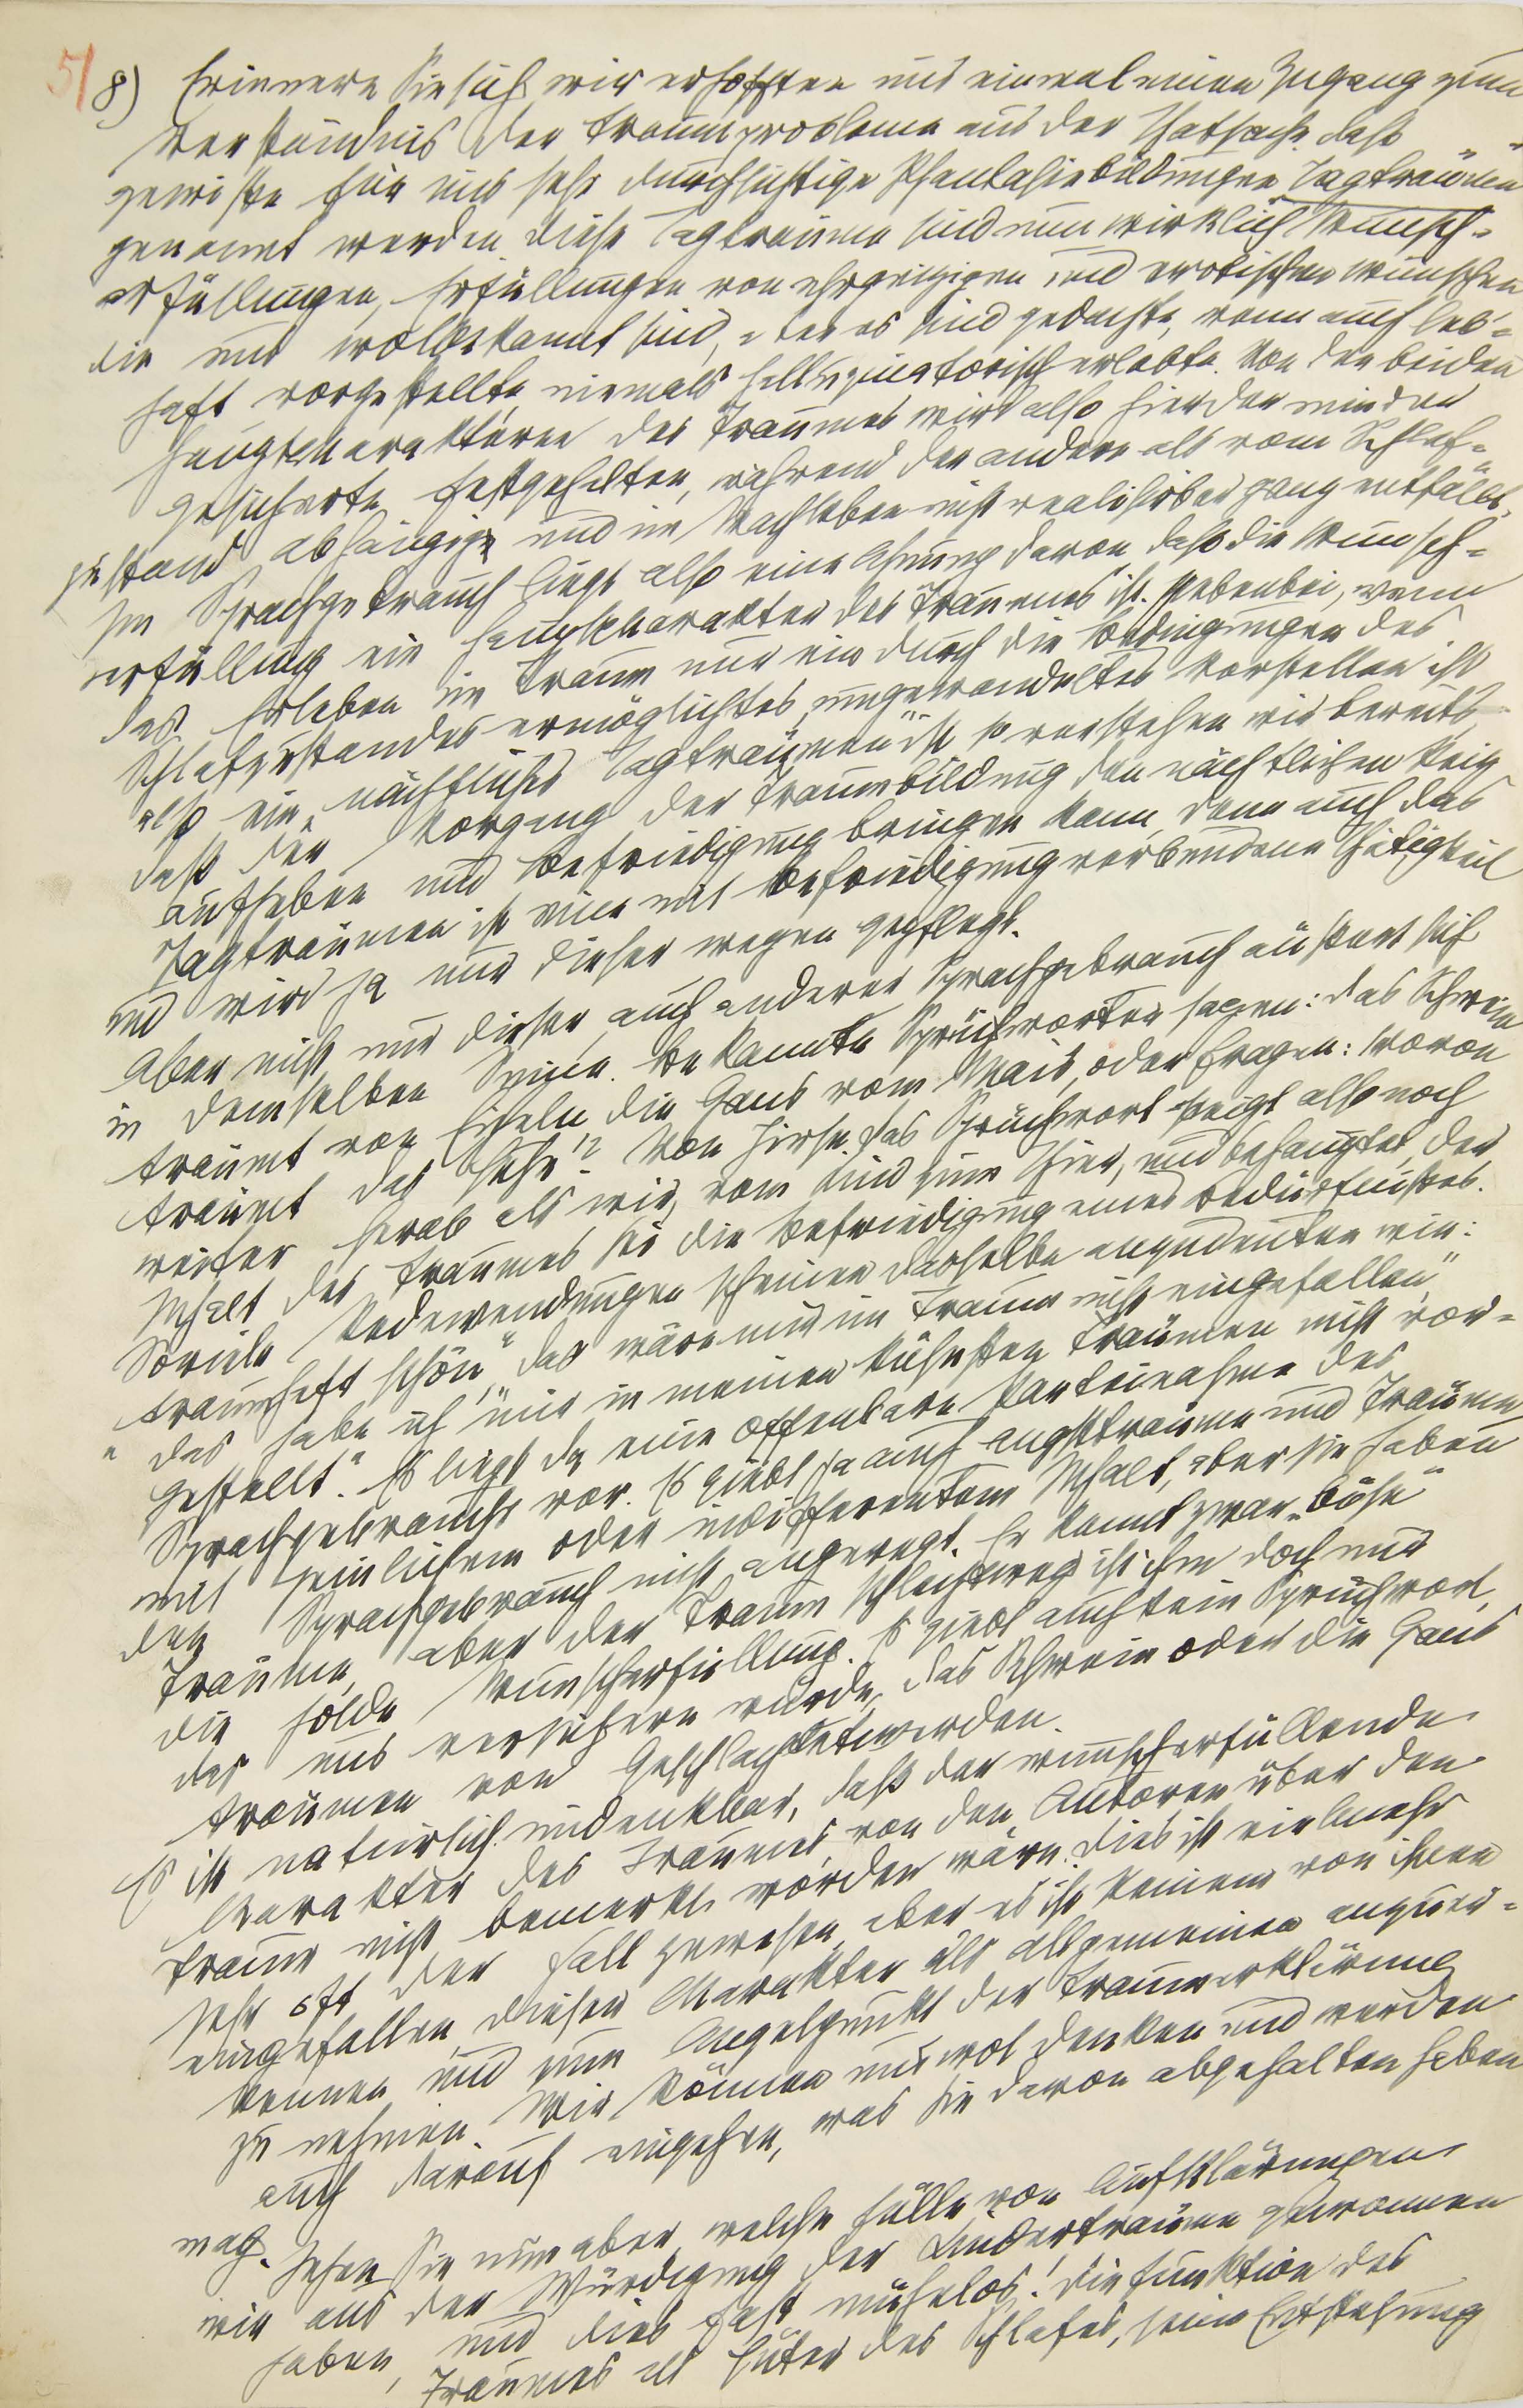 51
8) Erinnern Sie sich wir erhofften uns einmal einen Zugang zum
Verständnis der Traumprobleme aus der Thatsache daß
gewisse für uns sehr durchsichtige Phantasiebildungen „Tagträume“
genannt werden. Diese Tagträume sind nun wirklich Wunsch-
erfüllungen, Erfüllungen von ehrgeizigen und erotischen Wünschen
die uns wolbekannt sind, aber es sind gedachte, wenn auch leb-
haft vorgestellte, niemals halluzinatorisch erlebte. Von den beiden
Hauptcharakteren des Traumes wird also hier der minder
gesicherte festgehalten, während der andere als vom Schlaf-
zustand abhängige und im Wachleben nicht realisirbar ganz entfällt.
Im Sprachgebrauch liegt also eine Ahnung davon, daß die Wunsch-
erfüllung ein Hauptcharakter des Traumes ist. Nebenbei, wenn
das Erleben im Traum nur ein durch die Bedingungen des
Schlafzustandes ermöglichtes, umgewandeltes Vorstellen ist
also ein „nächtliches Tagträumen“ ist, so verstehen wir bereits,
daß der Vorgang der Traumbildung den nächtlichen Reiz
aufheben und Befriedigung bringen kann, denn auch das
Tagträumen ist eine mit Befriedigung verbundene Thätigkeit
und wird ja nur dieser wegen gepflegt.
Aber nicht nur dieser, auch anderer Sprachgebrauch äußert sich
in demselben Sinne. Bekannte Sprüchwörter sagen: das Schwein
träumt von Eicheln, die Gans vom Mais, oder fragen: Wovon
träumt das Huhn? Von Hirse. Das Sprüchwort steigt also noch
weiter herab als wir, vom Kind zum Thier, und behauptet, der
Inhalt des Traumes sei die Befriedigung eines Bedürfnisses.
Soviele Redewendungen scheinen dasselbe anzudeuten wie:
„traumhaft schön“, „das wäre mir im Traum nicht eingefallen“,
„das habe ich mir in meinen kühnsten Träumen nicht vor-
gestellt“. Es liegt da eine offenbare Parteinahme des
Sprachgebrauchs vor. Es giebt ja auch Angstträume und Träume
mit peinlichem oder indifferentem Inhalt, aber sie haben
den Sprachgebrauch nicht angeregt. Er kennt zwar „böse“
Träume, aber der Traum schlechtweg ist ihm doch nur
die holde Wunscherfüllung. Es giebt auch kein Sprüchwort,
das uns versichern würde, das Schwein oder die Gans
träumen vom Geschlachtetwerden.
Es ist natürlich undenkbar, daß der wunscherfüllende
Charakter des Traumes von den Autoren über den
Traum nicht bemerkt worden wäre. Dies ist vielmehr
sehr oft der Fall gewesen, aber es ist keinem von ihnen
eingefallen, diesen Charakter als allgemeinen anzuer-
kennen und zum Angelpunkt der Traumerklärung
zu nehmen. Wir können uns wol denken und werden
auch darauf eingehen, was sie davon abgehalten haben
mag.
Sehen Sie nun aber, welche Fülle von Aufklärungen
wir aus der Würdigung der Kinderträume gewonnen
haben, und dies fast mühelos! Die Funktion des
Traumes als Hüter des Schlafes, seine Entstehung